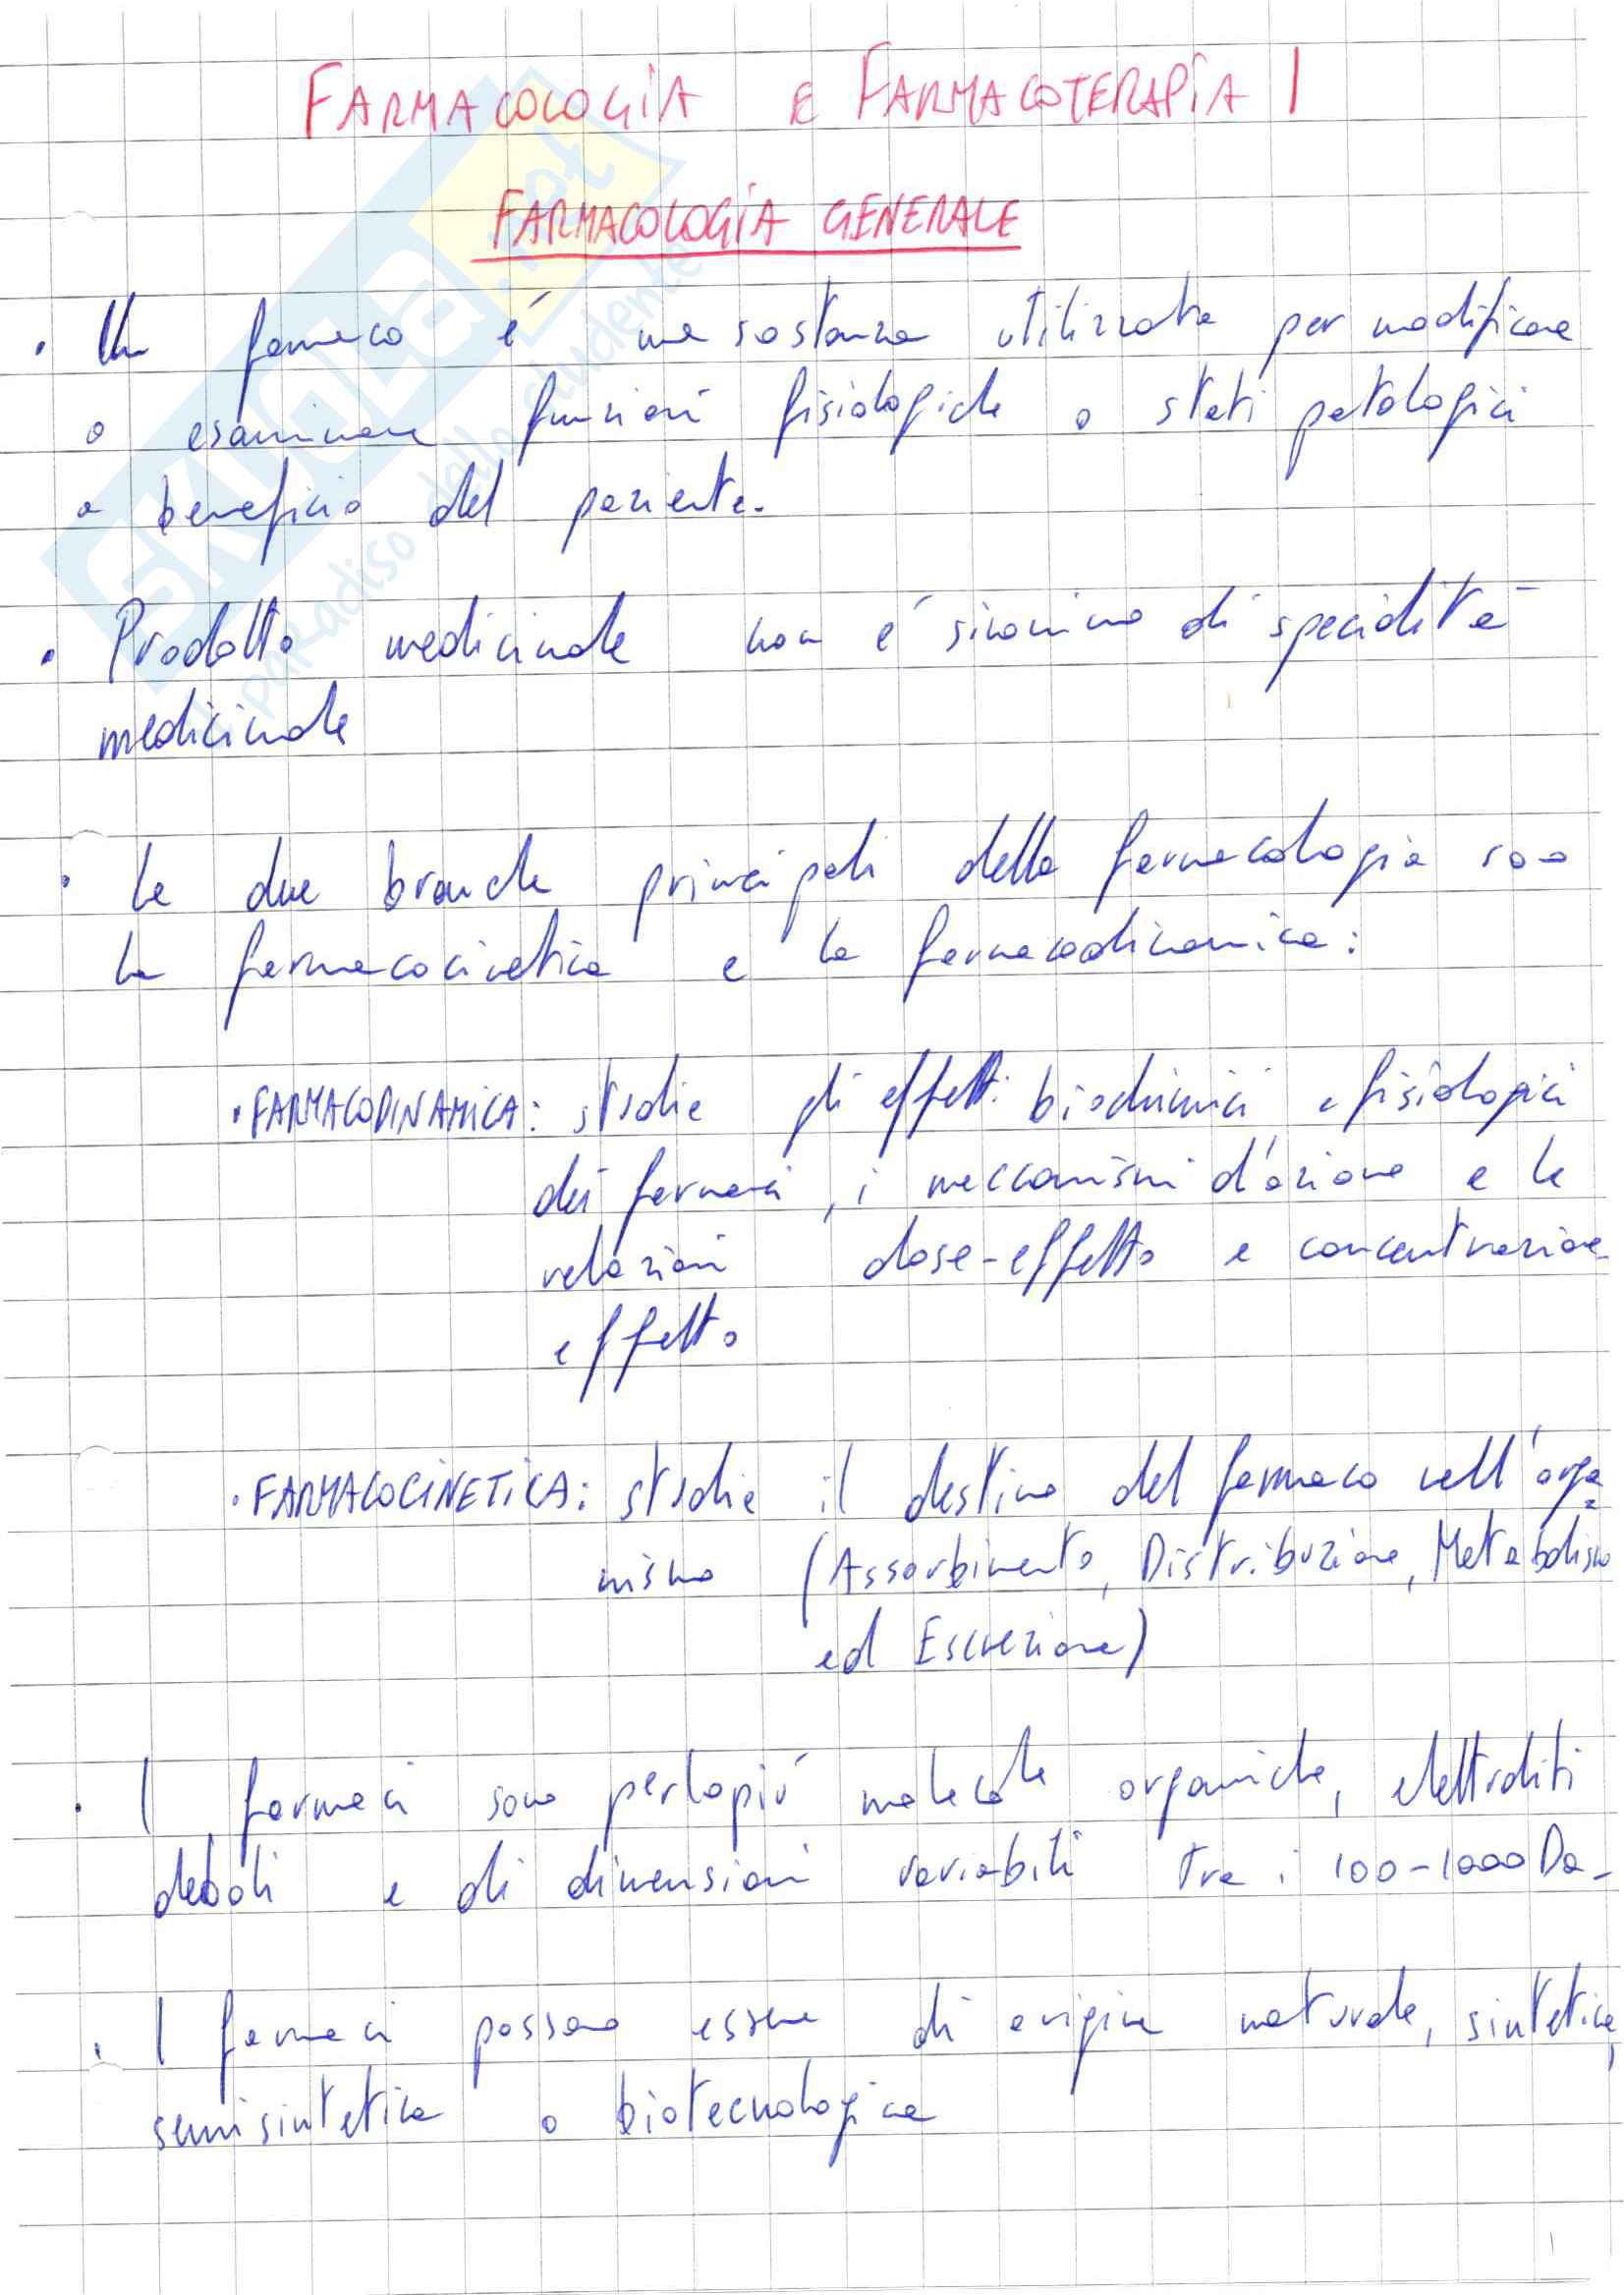 FARMACOLOGIA E FARMACOTERAPIA 1
FARMACOLOGIA GENERALE
• Un farmaco é una sostanza utilizzata per modificare
o esaminare funzioni fisiologiche o stati patologici
a beneficio del paziente.
• Prodotto medicinale non é sinonimo di specialità
medicinale
• Le due branche principali della farmacologia sono
la farmacocinetica e la farmacodinamica:
• FARMACODINAMICA: studia gli effetti biochimici e fisiologici
dei farmaci, i meccanismi d'azione e le
relazioni dose-effetto e concentrazione
effetto
• FARMACOCINETICA: studia il destino del farmaco nell'orga=
nismo (Assorbimento, Distribuzione, Metabolismo
ed Escrezione)
• I farmaci sono perlopiú molecole organiche, elettroliti
deboli e di dimensioni variabili tra i 100-1000 Da.
• I farmaci possono essere di origine naturale, sintetica,
semisintetica o biotecnologica
1
SKUOLA.net
il paradiso dello studente